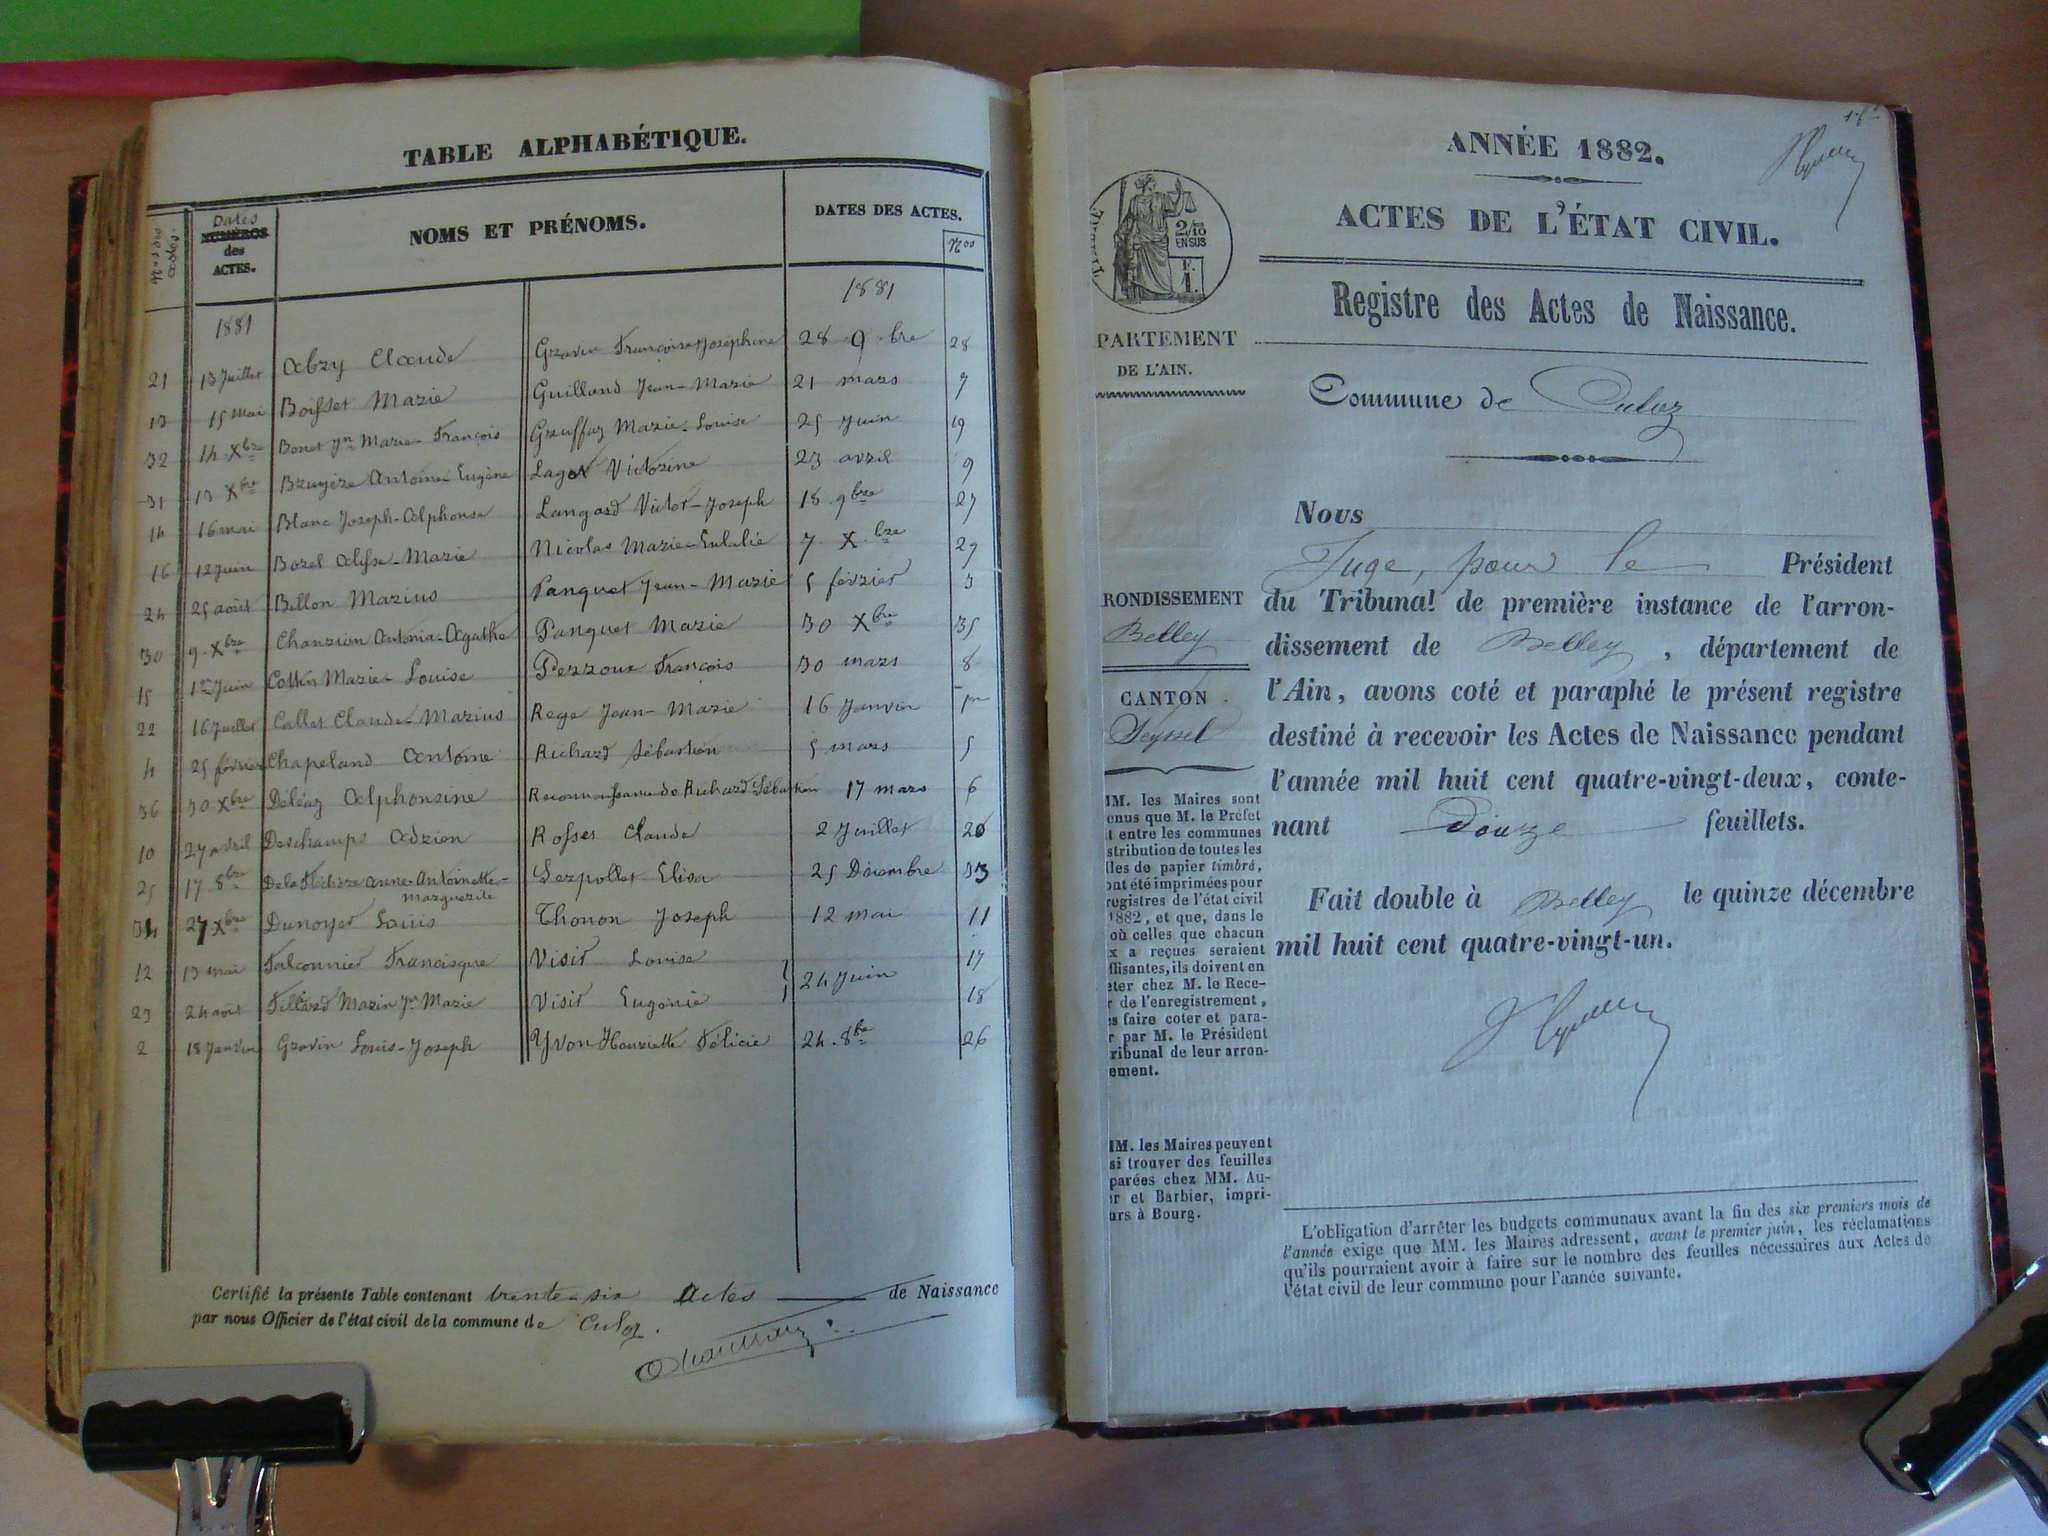 TABLE ALPHABÉTIQUE.
Nos des actes.
Dates
NUMÉROS
des
ACTES.
NOMS ET PRÉNOMS.
DATES DES ACTES.
Nos
1881
1881
21 13 Juillet Abry Claude
13 15 mai Boisset Marie
32 14 Xbre Bonet Jn Marie-François
31 13 Xbre Bruyère Antoine-Eugène
14 16 mai Blanc Joseph-Alphonse
16 12 Juin Borel Marie
24 25 août Billon Marius
30 9 Xbre Antonia-Agathe
15 1er Juin Cottin Marie-Louise
22 16 Juillet Callet Claude-Marius
4 25 février Chapeland Antoine
36 30 Xbre Déléaz Alphonsine
10 27 avril Deschamps Adrien
25 17 8bre Anne-Antoinette-
Marguerite
34 27 Xbre Dunoyer Louis
12 13 mai Falconnier Francisque
23 24 août Jn Marie
2 18 Janvier Gravin Louis-Joseph
Gravin Françoise Joséphine 28 9bre 28
Guilland Jean-Marie 21 mars 7
Gruffaz Marie-Louise 25 Juin 19
Lagot Victorine 23 avril 9
Langard Victor-Joseph 18 9bre 27
Nicolas Marie-Eulalie 7 Xbre 29
Panquet Jean-Marie 5 février 3
Panquet Marie 30 Xbre 35
Perroux François 30 mars 8
Rege Jean-Marie 16 Janvier 1er
Richard Sébastien 5 mars 5
Reconnaissance de Richard Sébastien 17 mars 6
Rosset Claude 2 Juillet 20
Serpollet Elisa 25 Décembre 33
Thonon Joseph 12 mai 11
Visit Louise 17
24 Juin
Visit Eugénie 18
Yvon Henriette Félicie 24 8bre 26
Certifié la présente Table contenant trente-six Actes de Naissance
par nous Officier de l'état civil de la commune de Culoz.
ANNÉE 1882.
ACTES DE L'ÉTAT CIVIL.
2/10
EN SUS
F.
1.
Registre des Actes de Naissance.
PARTEMENT
DE L'AIN.
Commune de Culoz
RONDISSEMENT
Belley
CANTON
Seyssel
MM. les Maires sont
enus que M. le Préfet
t entre les communes
stribution de toutes les
lles de papier timbré,
ont été imprimées pour
registres de l'état civil
1882, et que, dans le
où celles que chacun
x a reçues seraient
ffisantes, ils doivent en
eter chez M. le Rece-
r de l'enregistrement,
es faire coter et para-
r par M. le Président
ribunal de leur arron-
ement.
MM. les Maires peuvent
si trouver des feuilles
parées chez MM. Au-
r et Barbier, impri-
urs à Bourg.
Nous
Juge, pour le Président
du Tribunal de première instance de l'arron-
dissement de Belley, département de
l'Ain, avons coté et paraphé le présent registre
destiné à recevoir les Actes de Naissance pendant
l'année mil huit cent quatre-vingt-deux, conte-
nant Douze feuillets.
Fait double à Belley le quinze décembre
mil huit cent quatre-vingt-un.
L'obligation d'arrêter les budgets communaux avant la fin des six premiers mois de
l'année exige que MM. les Maires adressent, avant le premier juin, les réclamations
qu'ils pourraient avoir à faire sur le nombre des feuilles nécessaires aux Actes de
l'état civil de leur commune pour l'année suivante.